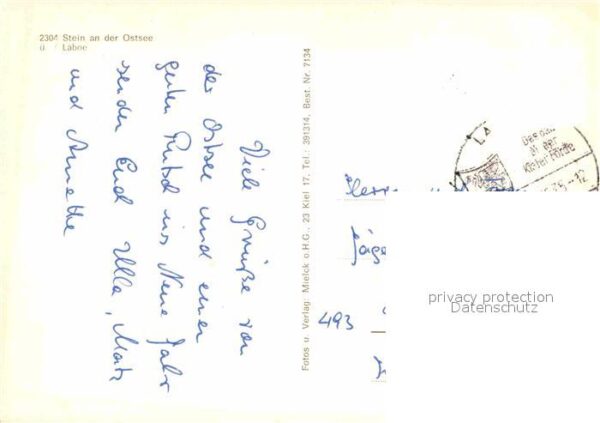 2304 Stein an der Ostsee
ü. Laboe
Viele Grüße von
der Ostsee und einen
guten Rutsch ins Neue Jahr
senden Euch Ulla, Maik
und Annette
Fotos u. Verlag Mielck o.H.G., 23 Kiel 17, Tel.: 391314, Best. Nr. 7134
LA
Das Bad
an der
Kieler Förde
-12
Herrn
Jäge
493
privacy protection
Datenschutz